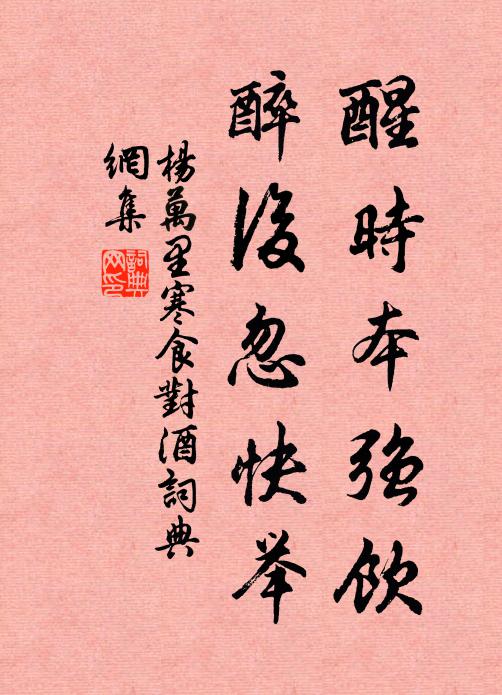 醒時本強飲
醉後忽快举
楊萬里寒食對酒詞典
網集
詞典
网印